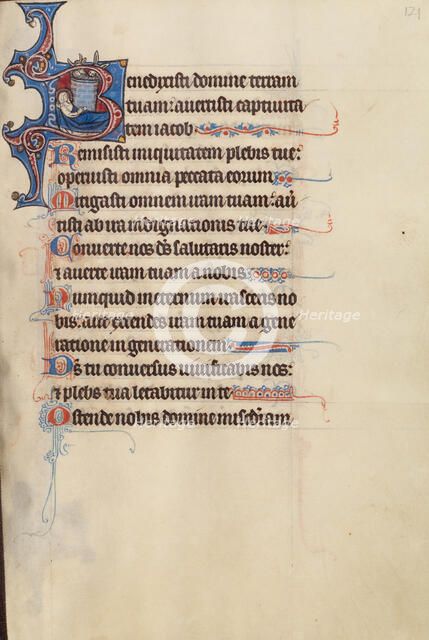 121
Benedixisti domine terram
tuam: avertisti captivita
tem iacob
Remisisti iniquitatem plebis tue:
operuisti omnia peccata eorum
Mitigasti omnem iram tuam: av̄
tisti ab ira indignationis tue
Converte nos ds̄ salutaris noster:
⁊ averte iram tuam a nobis
Numquid in eternum irasceris no
bis: aut extendes iram tuam a gene
ratione in generationem
Ds̄ tu conversus vivificabis nos:
⁊ plebs tua letabitur in te
Ostende nobis domine mis̄diam
Heritage
Heritage
Heritage
Heritage